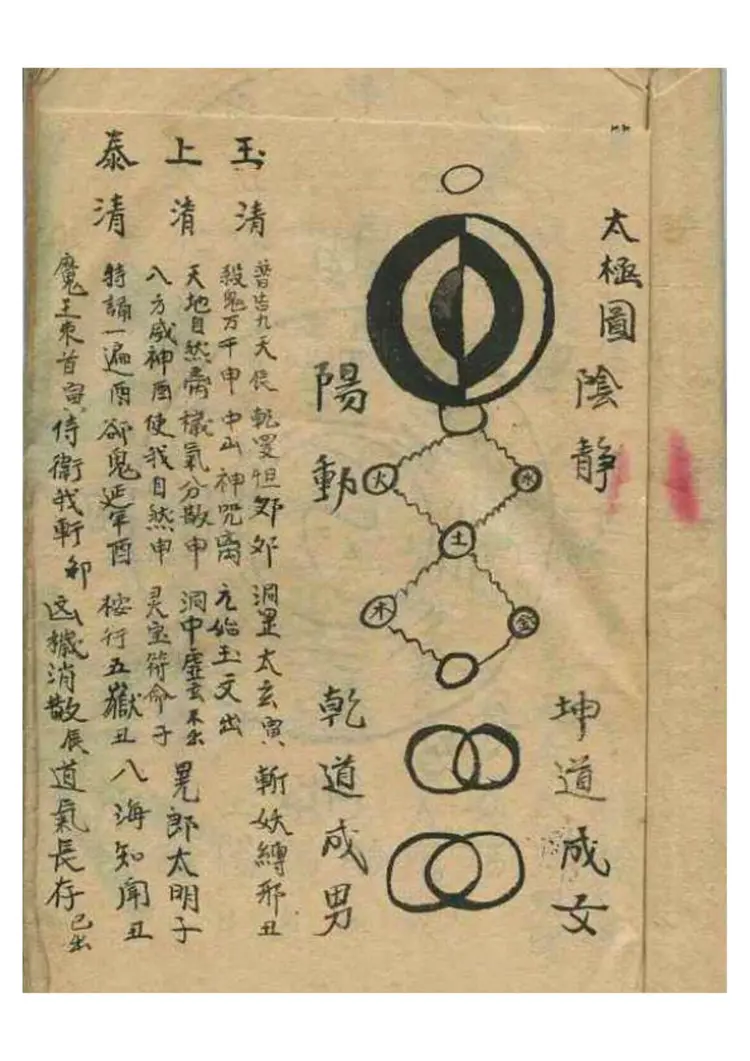 太極圖
陰静
坤道成女
火 水
土
木 金
陽動
乾道成男
玉清
普告九天辰 乾怛郊郊 洞罡太玄寅 斬妖縛邪丑
殺鬼万千申 中山神咒离 元始玉文出
上清
天地自然离 穢氣分散申 洞中虚玄未出 晃郎太明子
八方威神酉 使我自然申 灵宝符命子
泰清
特誦一遍酉 郤鬼延年酉 桉行五嶽丑 八海知聞丑
魔王束首寅 侍衛我軒卯 凶穢消散辰 道氣長存已出